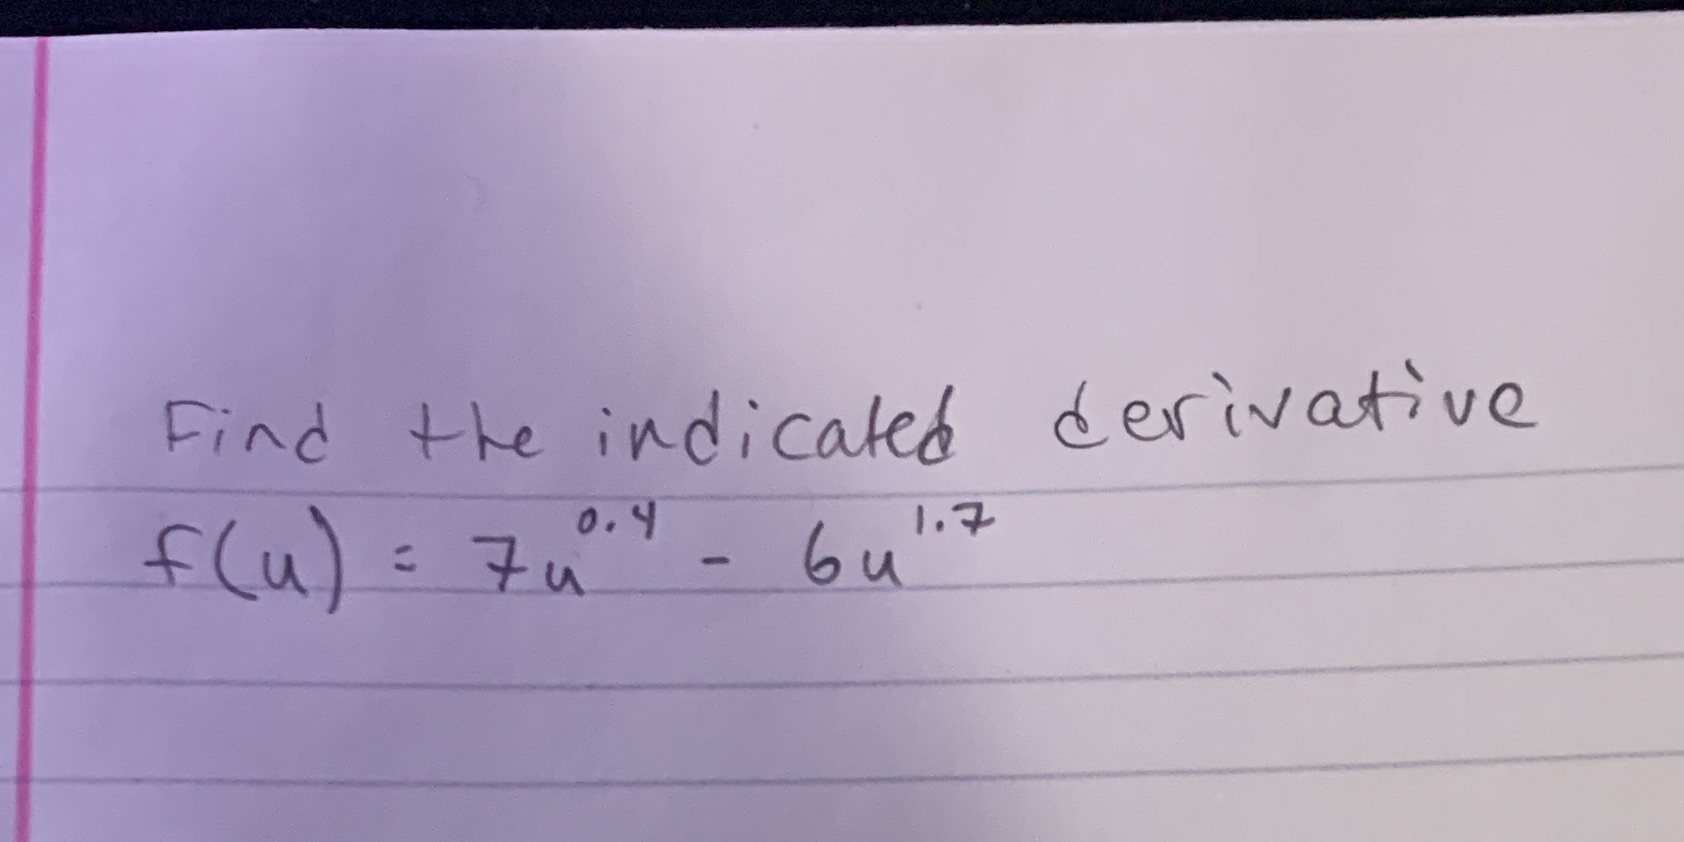 Find the indicated derivative
f(u) = 7u^0.4 - 6u^1.7